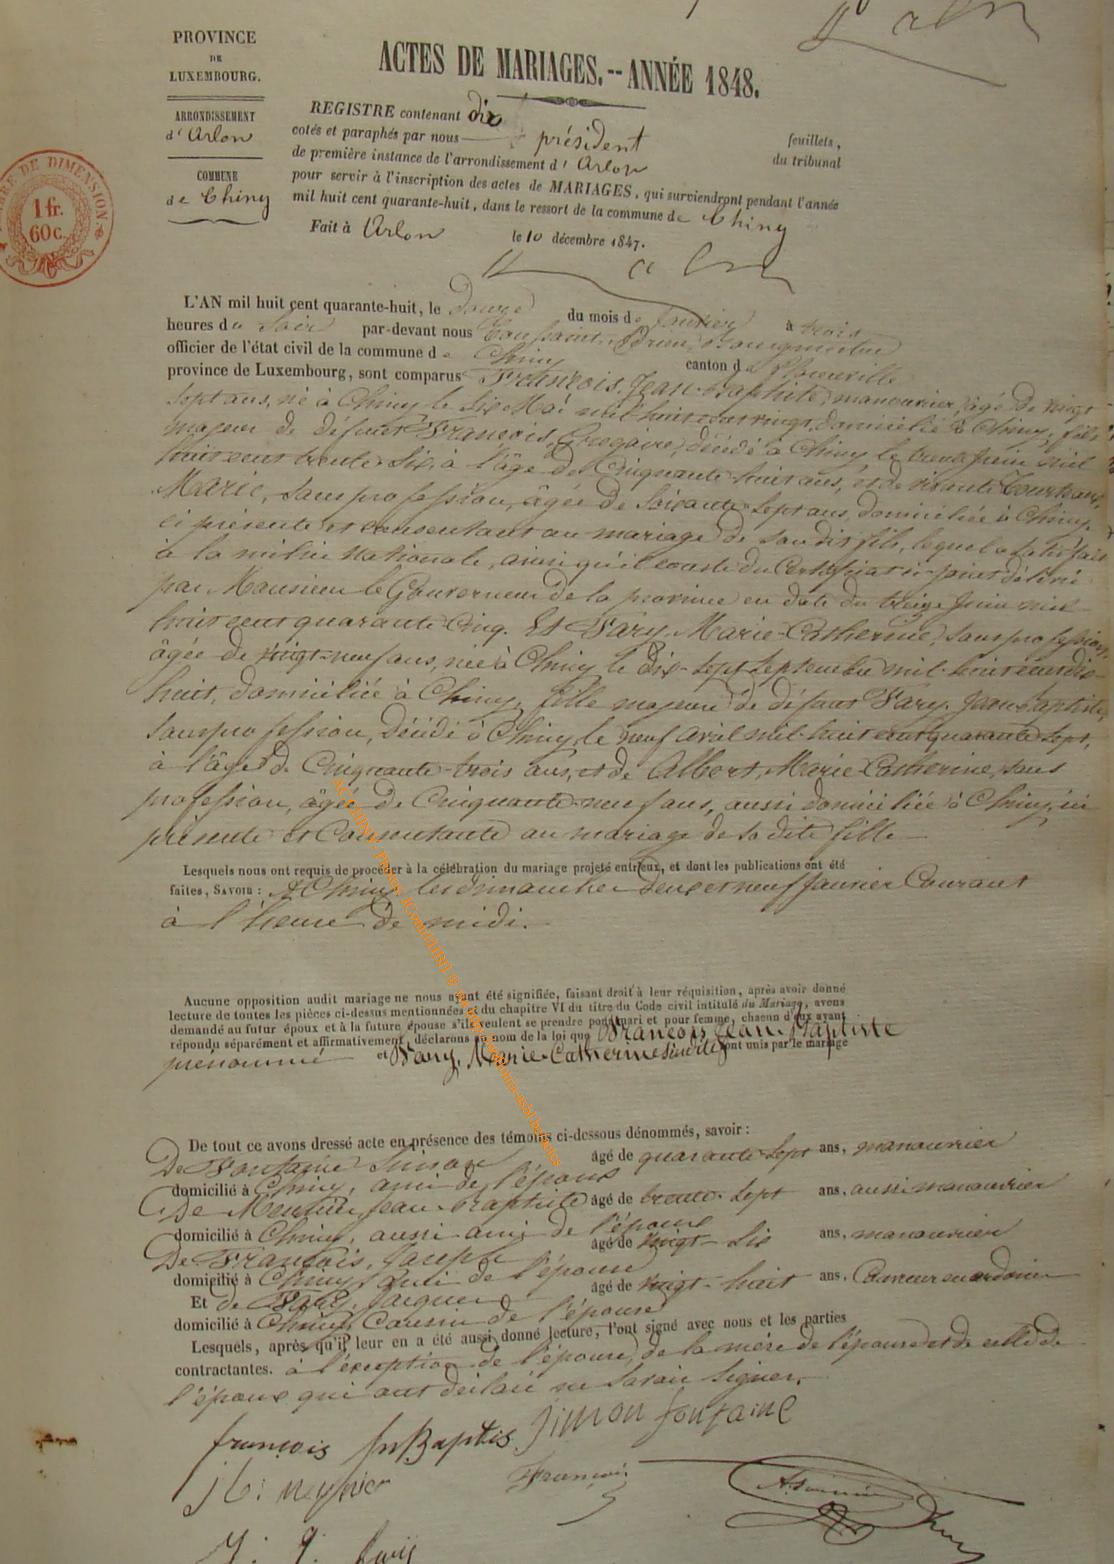 PROVINCE
DE
LUXEMBOURG.
ARRONDISSEMENT
d'Arlon
COMMUNE
de Chiny
DE DIMENSION
1 fr.
60 c.
ACTES DE MARIAGES.--ANNÉE 1848.
REGISTRE contenant dix feuillets,
cotés et paraphés par nous président du tribunal
de première instance de l'arrondissement d'Arlon
pour servir à l'inscription des actes de MARIAGES, qui surviendront pendant l'année
mil huit cent quarante-huit, dans le ressort de la commune de Chiny
Fait à Arlon le 10 décembre 1847.
L'AN mil huit cent quarante-huit, le douze du mois de Janvier à trois
heures du Soir par-devant nous Toussaint, bourgmestre
officier de l'état civil de la commune de Chiny canton de
province de Luxembourg, sont comparus François, Jean-Baptiste, manouvrier, âgé de vingt
Sept ans, né à Chiny le Six Mai mil huit cent vingt, domicilié à Chiny, fils
majeur de défunt François, Grégoire, décédé à Chiny le trente Juin mil
huit cent trente Six, à l'âge de Cinquante huit ans, et de
Marie, Sans profession, âgée de Soixante Sept ans, domiciliée à Chiny,
ci présente et consentant au mariage de Son dit fils, lequel a Satisfait
à la milice Nationale, ainsi qu'il conste du Certificat ci-joint délivré
par Monsieur le Gouverneur de la province en date du treize Juin mil
huit cent quarante Cinq. Et Fary, Marie-Catherine, Sans profession,
âgée de vingt-neuf ans, née à Chiny le dix-Sept Septembre mil huit cent dix
huit, domiciliée à Chiny, fille majeure de défunt Fary, Jean Baptiste,
Sans profession, décédé à Chiny le neuf avril mil huit cent quarante Sept,
à l'âge de Cinquante-trois ans, et de Albert, Marie Catherine, Sans
profession, âgée de Cinquante-neuf ans, aussi domiciliée à Chiny, ici
présente et Consentante au mariage de Sa dite fille
Lesquels nous ont requis de procéder à la célébration du mariage projeté entr'eux, et dont les publications ont été
faites, SAVOIR : A Chiny les dimanches deux et neuf Janvier Courant
à l'heure de midi.
Aucune opposition audit mariage ne nous ayant été signifiée, faisant droit à leur réquisition, après avoir donné
lecture de toutes les pièces ci-dessus mentionnées et du chapitre VI du titre du Code civil intitulé du Mariage, avons
demandé au futur époux et à la future épouse s'ils veulent se prendre pour mari et pour femme, chacun d'eux ayant
répondu séparément et affirmativement, déclarons au nom de la loi que François Jean-Baptiste
prénommé et Fary, Marie-Catherine Susdite sont unis par le mariage
De tout ce avons dressé acte en présence des témoins ci-dessous dénommés, savoir :
De Fontaine Simon âgé de quarante Sept ans, manouvrier
domicilié à Chiny, ami de l'époux
De Jean-Baptiste âgé de trente-Sept ans, aussi manouvrier
domicilié à Chiny, aussi ami de l'époux
De François, Joseph âgé de vingt-Six ans, manouvrier
domicilié à Chiny, ami de l'épouse
Et de Fary, Jacques âgé de vingt-huit ans, Couvreur en ardoises
domicilié à Chiny, Cousin de l'épouse
Lesquels, après qu'il leur en a été aussi donné lecture, l'ont signé avec nous et les parties
contractantes. à l'exception de l'épouse, de la mère de l'épouse et de celle de
l'époux qui ont déclaré ne Savoir Signer.
françois Jn Baptis Simon fontaine
François